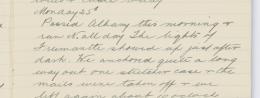 Monday 25th
Passed Albany this morning &
ran it all day The lights of
Fremantle showed up just after
dark. We anchored quite a long
way out one stretcher case & the
mails were taken off & we
left again about